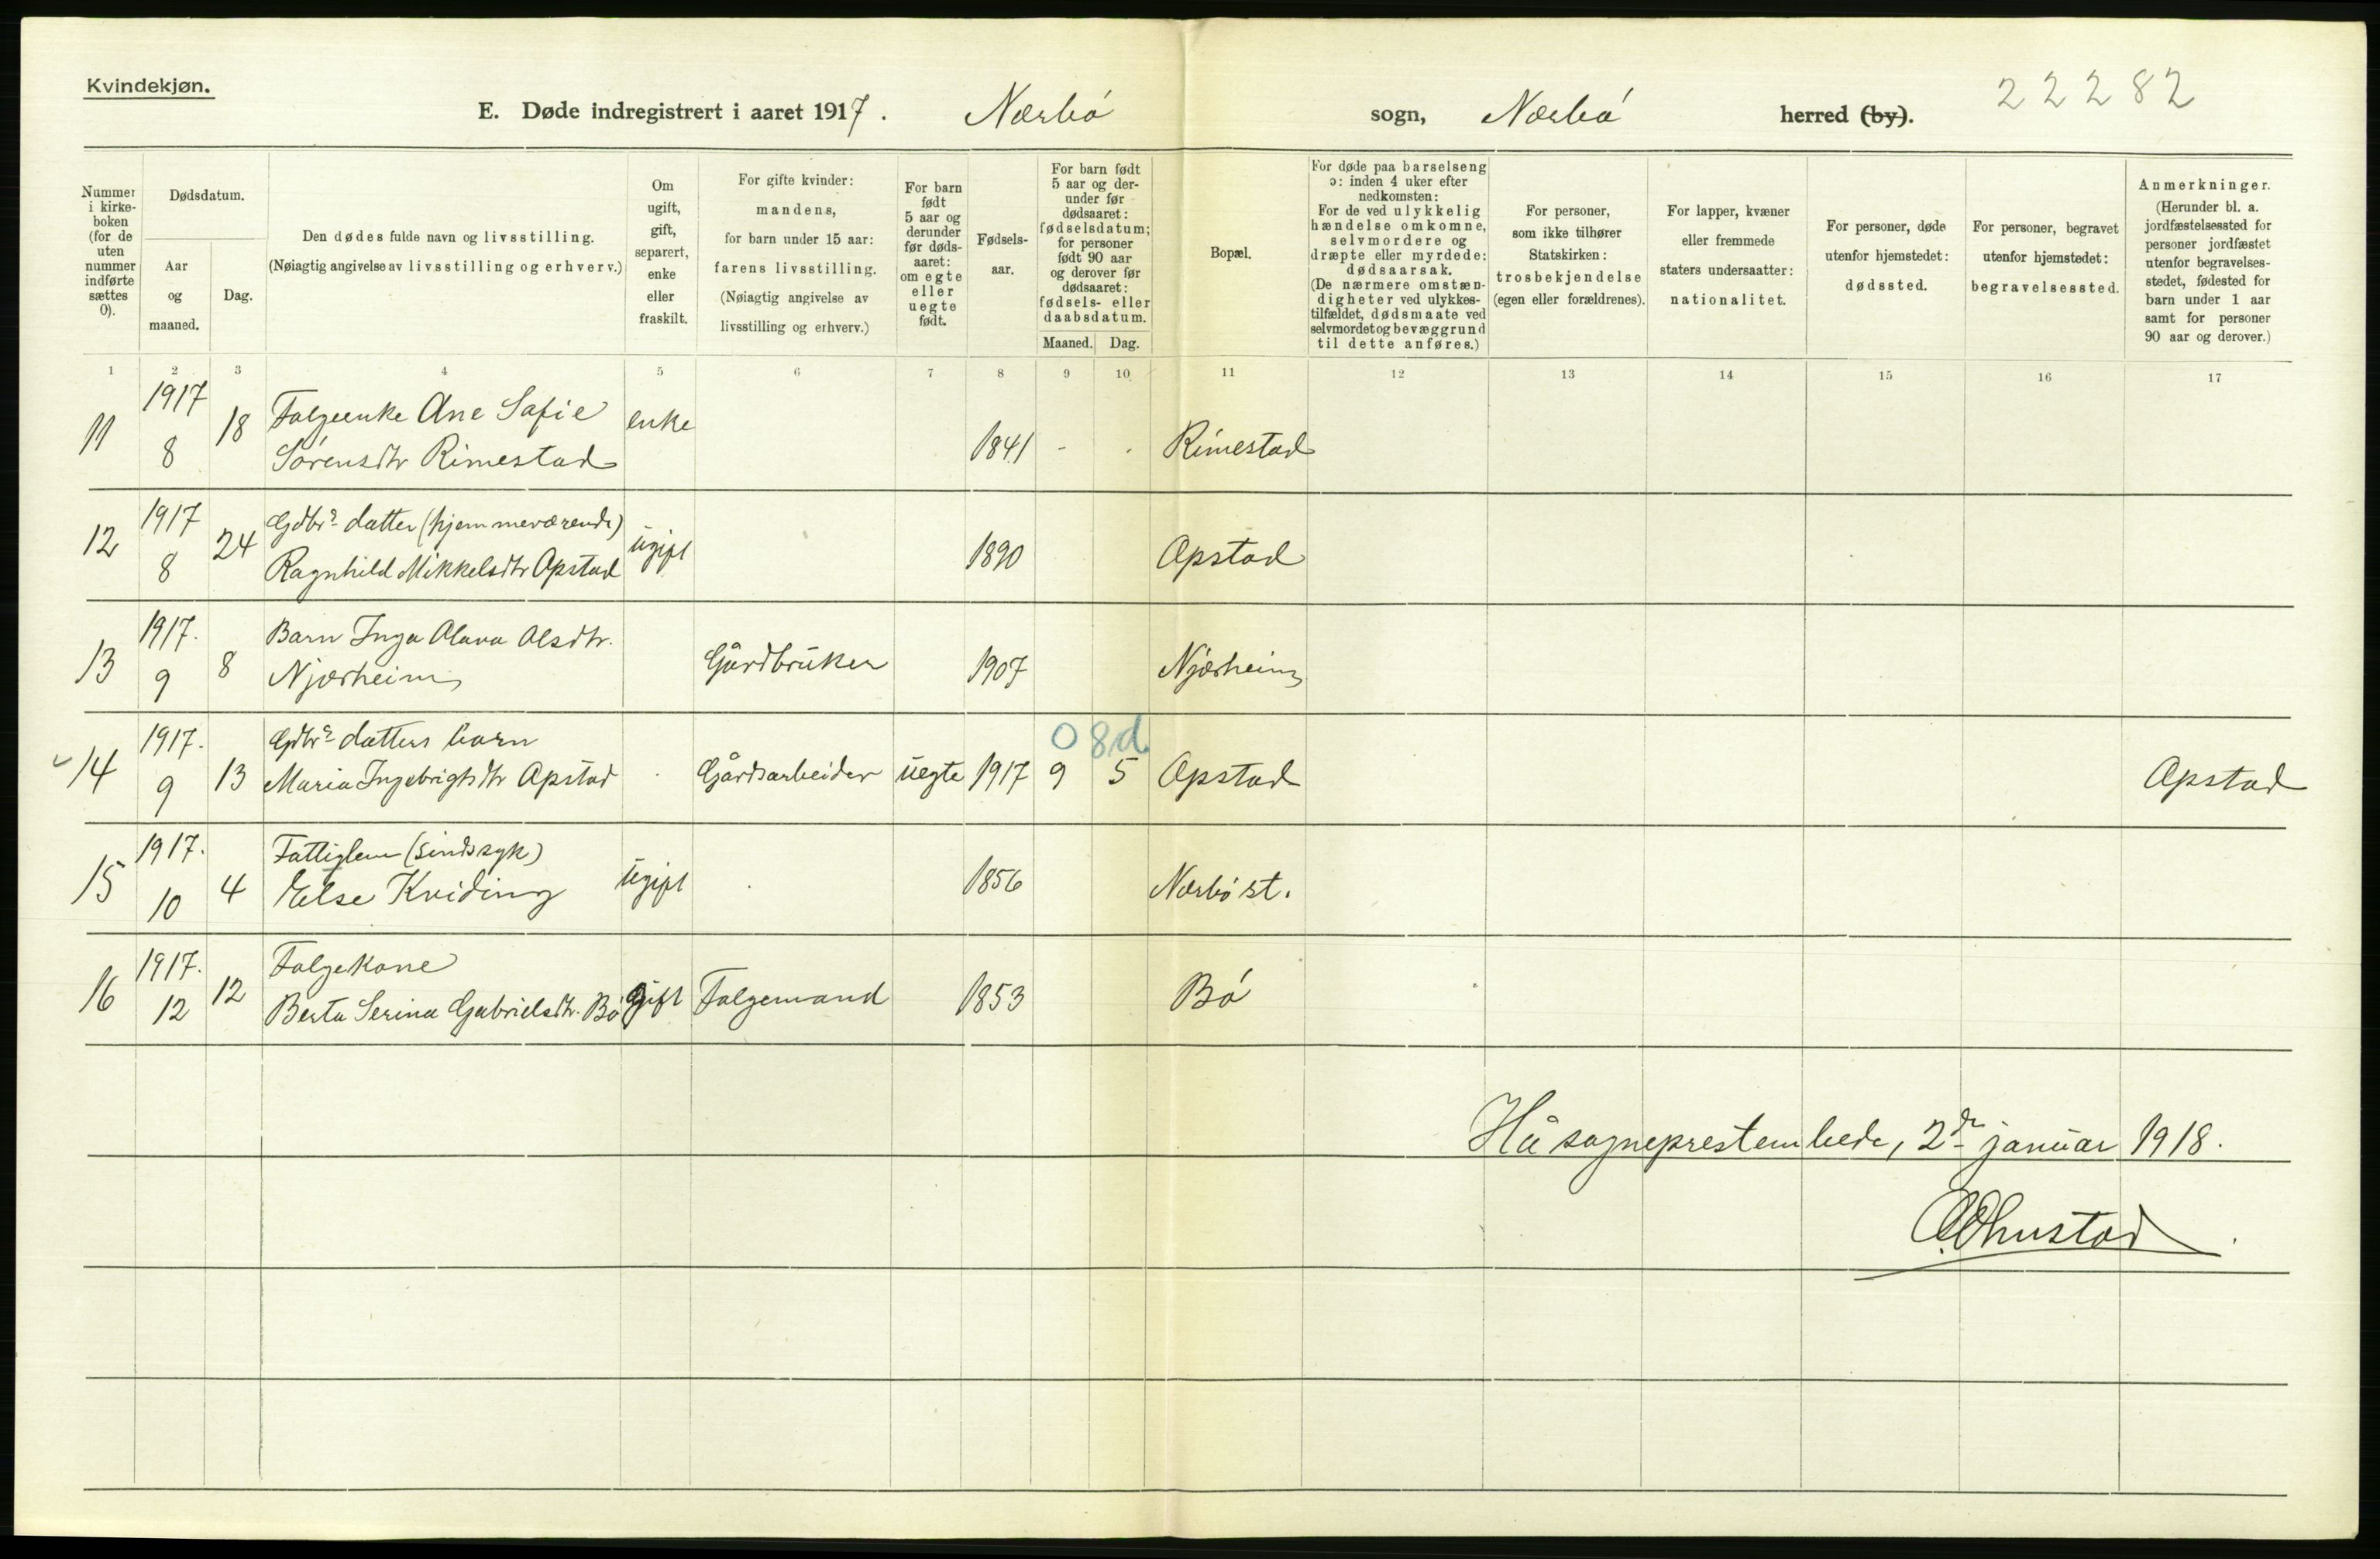 Kvindekjøn.
22282
E. Døde indregistrert i aaret 1917. Nærbó sogn, Nærbó herred (by).
Nummer i kirke-boken (for de uten nummer indførte sættes 0).
Dødsdatum.
Aar og maaned.
Dag.
Den dødes fulde navn og livsstilling.
(Nøiagtig angivelse av livsstilling og erhverv.)
Om ugift, gift, separert, enke eller fraskilt.
For gifte kvinder: mandens, for barn under 15 aar: farens livsstilling. (Nøiagtig angivelse av livsstilling og erhverv.)
For barn født 5 aar og derunder før døds-aaret: om egte eller uegte født.
Fødsels-aar.
For barn født 5 aar og der-under før dødsaaret: fødselsdatum; for personer født 90 aar og derover før dødsaaret: fødsels- eller daabsdatum.
Maaned. Dag.
Bopæl.
For døde paa barselseng ɔ: inden 4 uker efter nedkomsten: For de ved ulykkelig hændelse omkomne, selvmordere og dræpte eller myrdede: dødsaarsak. (De nærmere omstæn-digheter ved ulykkes-tilfældet, dødsmaate ved selvmordet og bevæggrund til dette anføres.)
For personer, som ikke tilhører Statskirken: trosbekjendelse (egen eller forældrenes).
For lapper, kvæner eller fremmede staters undersaatter: nationalitet.
For personer, døde utenfor hjemstedet: dødssted.
For personer, begravet utenfor hjemstedet: begravelsessted.
Anmerkninger. (Herunder bl. a. jordfæstelsessted for personer jordfæstet utenfor begravelses-stedet, fødested for barn under 1 aar samt for personer 90 aar og derover.)
1 2 3 4 5 6 7 8 9 10 11 12 13 14 15 16 17
11 1917 8 18 Folgeenke Ane Sofie Sörensdtr Rimestad enke 1841 - - Rimestad
12 1917 8 24 Gdbrs datter (hjemmeværende) Ragnhild Mikkelsdtr Opstad ugift 1890 Opstad
13 1917. 9 8 Barn Inga Olava Olsdtr. Njærheim Gårdbruker 1907 Njærheim
14 1917. 9 13 Gdbrs datters barn Maria Ingebrigtsdtr Opstad Gårdsarbeider uegte 1917 9 5 0 8 d. Opstad Opstad
15 1917. 10 4 Fattiglem (sindssyk) Else Kviding ugift 1856 Nærbó st.
16 1917. 12 12 Folgekone Berta Serina Gabrielsdtr. Bó gift Folgemand 1853 Bó
Hå sogneprestembede, 2de januar 1918.